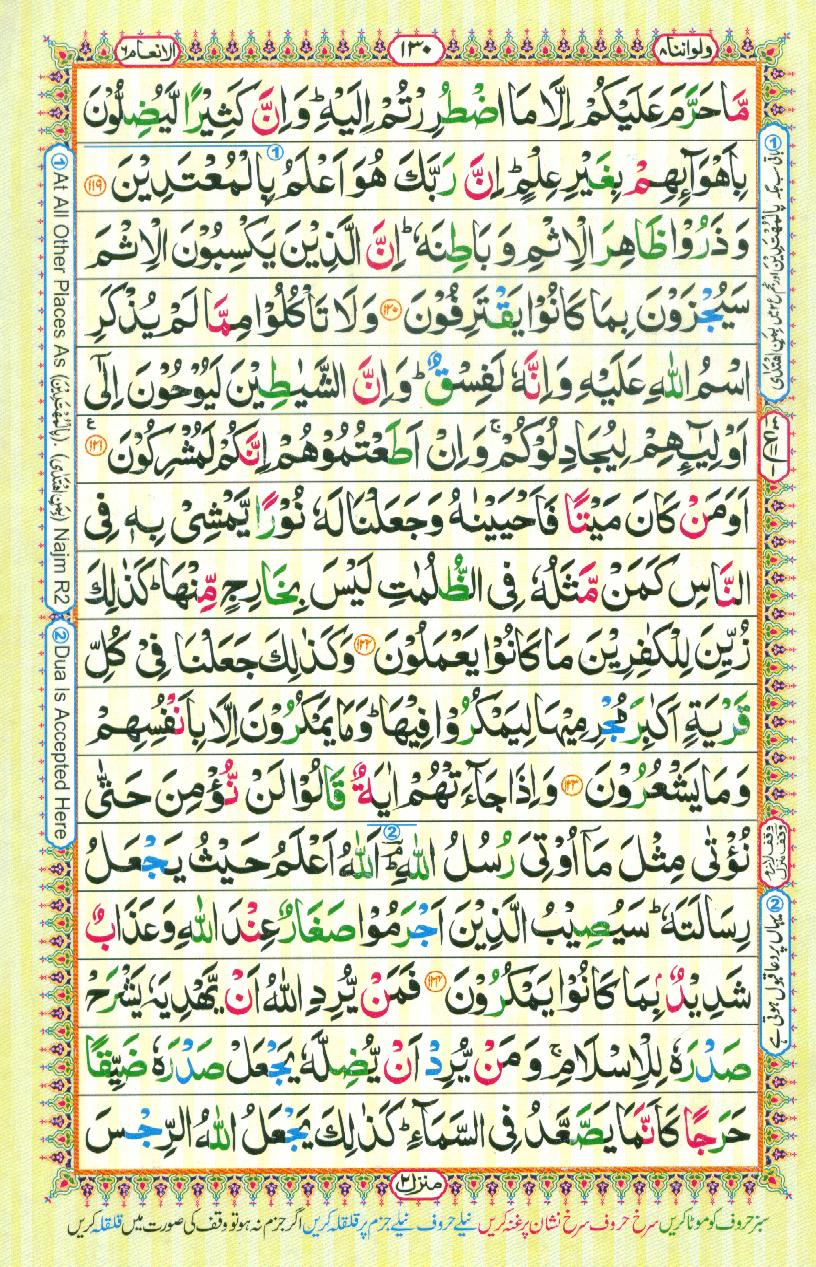 ولواننا ۸
۱۳۰
الانعام ۶
مَّا حَرَّمَ عَلَيْكُمْ اِلَّا مَا اضْطُرِرْتُمْ اِلَيْهِ ؕ وَاِنَّ كَثِيْرًا لَّيُضِلُّوْنَ
بِاَهْوَآىِٕهِمْ بِغَيْرِ عِلْمٍ ؕ اِنَّ رَبَّكَ هُوَ اَعْلَمُ بِالْمُعْتَدِيْنَ ۝۱۱۹
وَذَرُوْا ظَاهِرَ الْاِثْمِ وَبَاطِنَهٗ ؕ اِنَّ الَّذِيْنَ يَكْسِبُوْنَ الْاِثْمَ
سَيُجْزَوْنَ بِمَا كَانُوْا يَقْتَرِفُوْنَ ۝۱۲۰ وَلَا تَاْكُلُوْا مِمَّا لَمْ يُذْكَرِ
اسْمُ اللّٰهِ عَلَيْهِ وَاِنَّهٗ لَفِسْقٌ ؕ وَاِنَّ الشَّيٰطِيْنَ لَيُوْحُوْنَ اِلٰٓى
اَوْلِيٰٓـِٕهِمْ لِيُجَادِلُوْكُمْ ۚ وَاِنْ اَطَعْتُمُوْهُمْ اِنَّكُمْ لَمُشْرِكُوْنَ ۝۱۲۱
اَوَمَنْ كَانَ مَيْتًا فَاَحْيَيْنٰهُ وَجَعَلْنَا لَهٗ نُوْرًا يَّمْشِىْ بِهٖ فِى
النَّاسِ كَمَنْ مَّثَلُهٗ فِى الظُّلُمٰتِ لَيْسَ بِخَارِجٍ مِّنْهَا ؕ كَذٰلِكَ
زُيِّنَ لِلْكٰفِرِيْنَ مَا كَانُوْا يَعْمَلُوْنَ ۝۱۲۲ وَكَذٰلِكَ جَعَلْنَا فِىْ كُلِّ
قَرْيَةٍ اَكٰبِرَ مُجْرِمِيْهَا لِيَمْكُرُوْا فِيْهَا ؕ وَمَا يَمْكُرُوْنَ اِلَّا بِاَنْفُسِهِمْ
وَمَا يَشْعُرُوْنَ ۝۱۲۳ وَاِذَا جَآءَتْهُمْ اٰيَةٌ قَالُوْا لَنْ نُّؤْمِنَ حَتّٰى
نُؤْتٰى مِثْلَ مَاۤ اُوْتِىَ رُسُلُ اللّٰهِ ؔؕ اَللّٰهُ اَعْلَمُ حَيْثُ يَجْعَلُ
رِسَالَتَهٗ ؕ سَيُصِيْبُ الَّذِيْنَ اَجْرَمُوْا صَغَارٌ عِنْدَ اللّٰهِ وَعَذَابٌ
شَدِيْدٌۢ بِمَا كَانُوْا يَمْكُرُوْنَ ۝۱۲۴ فَمَنْ يُّرِدِ اللّٰهُ اَنْ يَّهْدِيَهٗ يَشْرَحْ
صَدْرَهٗ لِلْاِسْلَامِ ۚ وَمَنْ يُّرِدْ اَنْ يُّضِلَّهٗ يَجْعَلْ صَدْرَهٗ ضَيِّقًا
حَرَجًا كَاَنَّمَا يَصَّعَّدُ فِى السَّمَآءِ ؕ كَذٰلِكَ يَجْعَلُ اللّٰهُ الرِّجْسَ
منزل ۲
سبز حروف کو موٹا کریں سرخ حروف سرخ نشان پر غنہ کریں نیلے حروف نیلے جزم پر قلقلہ کریں اگر جزم نہ ہو تو وقف کی صورت میں قلقلہ کریں
① At All Other Places As (بِالْمُهْتَدِيْنَ), (بِمَنِ اهْتَدٰى) Najm R2
② Dua is Accepted Here
وقف لازم
وقف منزل
② یہاں پر دعا قبول ہوتی ہے